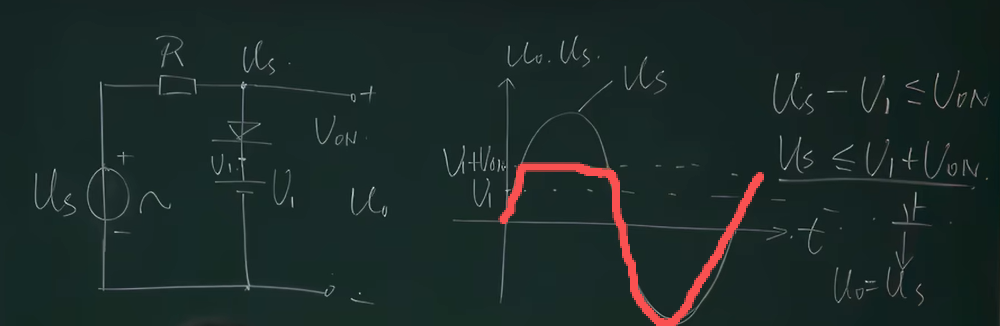 R
Us.
+
VON.
+
Us
~
V1
V1
U0
-
-
U0. Us.
Us
V1+VON
V1
t
Us - V1 ≤ VON
Us ≤ V1 + VON.
U0 = Us